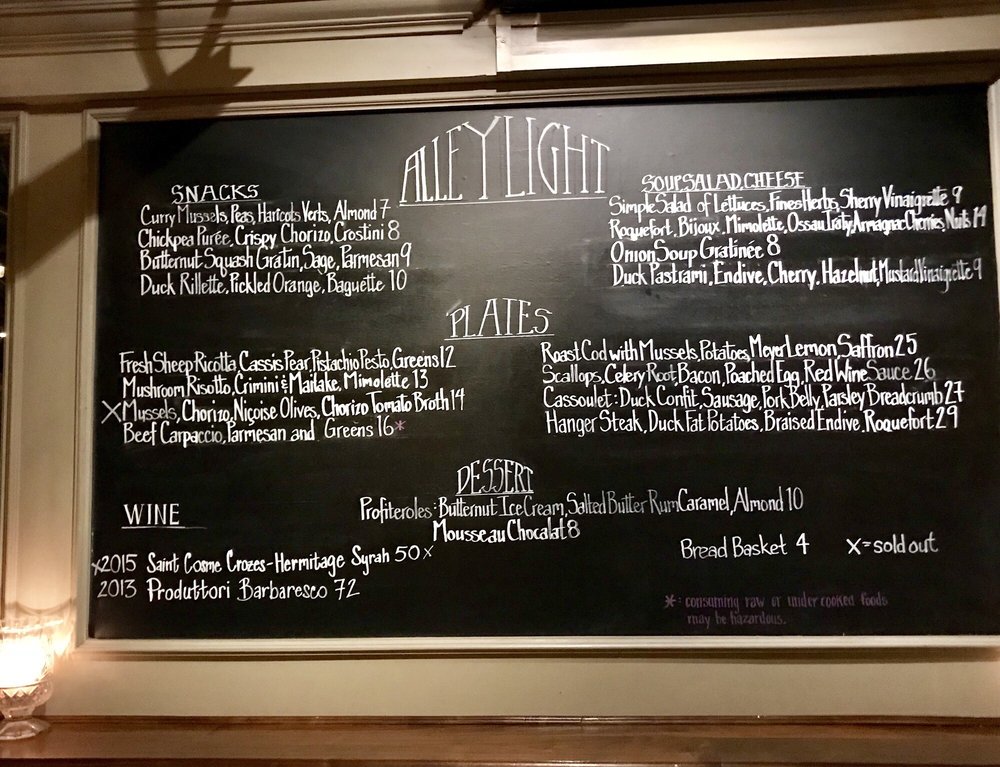 ALLEY LIGHT
SNACKS
Curry Mussels, Peas, Haricots Verts, Almond 7
Chickpea Purée, Crispy Chorizo, Crostini 8
Butternut Squash Gratin, Sage, Parmesan 9
Duck Rillette, Pickled Orange, Baguette 10
SOUP, SALAD, CHEESE
Simple Salad of Lettuces, Fines Herbs, Sherry Vinaigrette 9
Roquefort, Bijoux, Mimolette, Ossau Iraty, Armagnac Cherries, Nuts 14
Onion Soup Gratinée 8
Duck Pastrami, Endive, Cherry, Hazelnut, Mustard Vinaigrette 9
PLATES
Fresh Sheep Ricotta, Cassis Pear, Pistachio Pesto, Greens 12
Mushroom Risotto, Crimini & Maitake, Mimolette 13
X Mussels, Chorizo, Niçoise Olives, Chorizo Tomato Broth 14
Beef Carpaccio, Parmesan and Greens 16*
Roast Cod with Mussels, Potatoes, Meyer Lemon, Saffron 25
Scallops, Celery Root, Bacon, Poached Egg, Red Wine Sauce 26
Cassoulet: Duck Confit, Sausage, Pork Belly, Parsley Breadcrumb 27
Hanger Steak, Duck Fat Potatoes, Braised Endive, Roquefort 29
DESSERT
Profiteroles: Butternut Ice Cream, Salted Butter Rum Caramel, Almond 10
Mousse au Chocolat 8
WINE
x2015 Saint Cosme Crozes-Hermitage Syrah 50 x
2013 Produttori Barbaresco 72
Bread Basket 4 X=sold out
*: consuming raw or under cooked foods
may be hazardous.